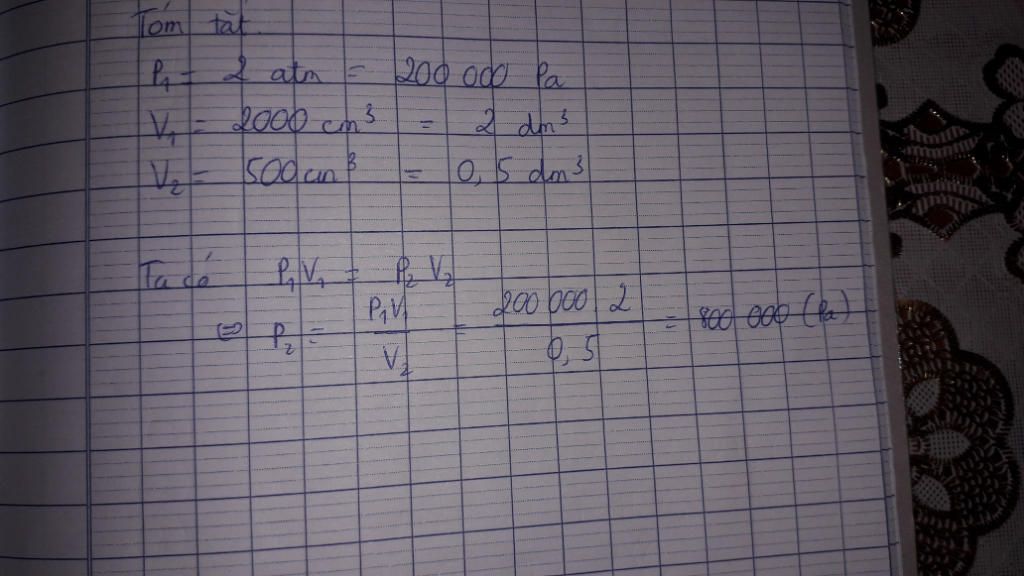 Tóm tắt.
P₁ = 2 atm = 200 000 Pa
V₁ = 2000 cm³ = 2 dm³
V₂ = 500 cm³ = 0,5 dm³
Ta có P₁V₁ = P₂ V₂
⇔ P₂ = P₁V₁ / V₂ = 200 000 . 2 / 0,5 = 800 000 (Pa)